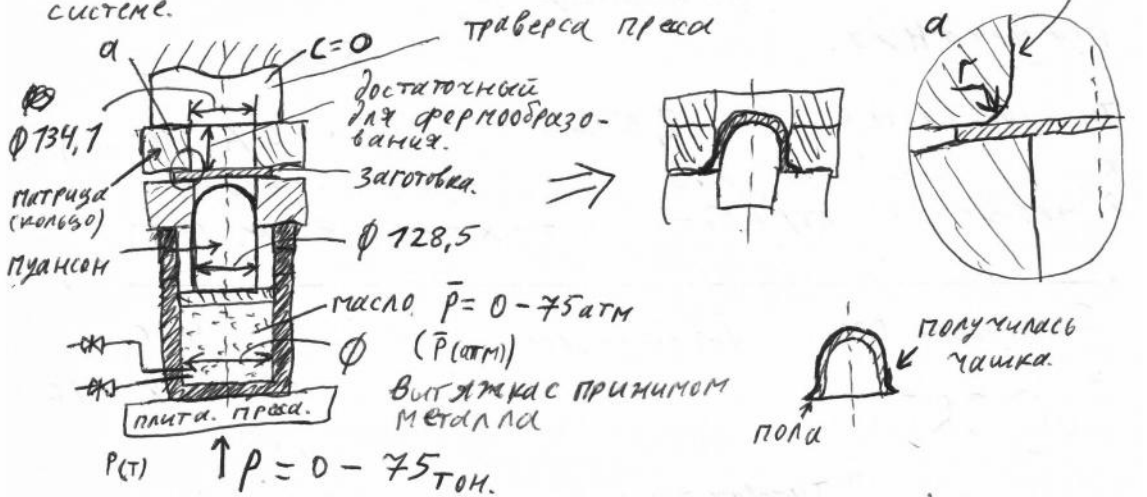 системе.
a
c=0
траверса пресса
Ф134,1
достаточный
для формообразо-
вания.
матрица
(кольцо)
заготовка.
пуансон
Ф 128,5
масло p̄= 0 - 75 атм
Ф (p̄(атм))
вытяжка с прижимом
металла
плита. пресса.
P(т)
P = 0 - 75 тон.
a
r
получилась
чашка.
пола